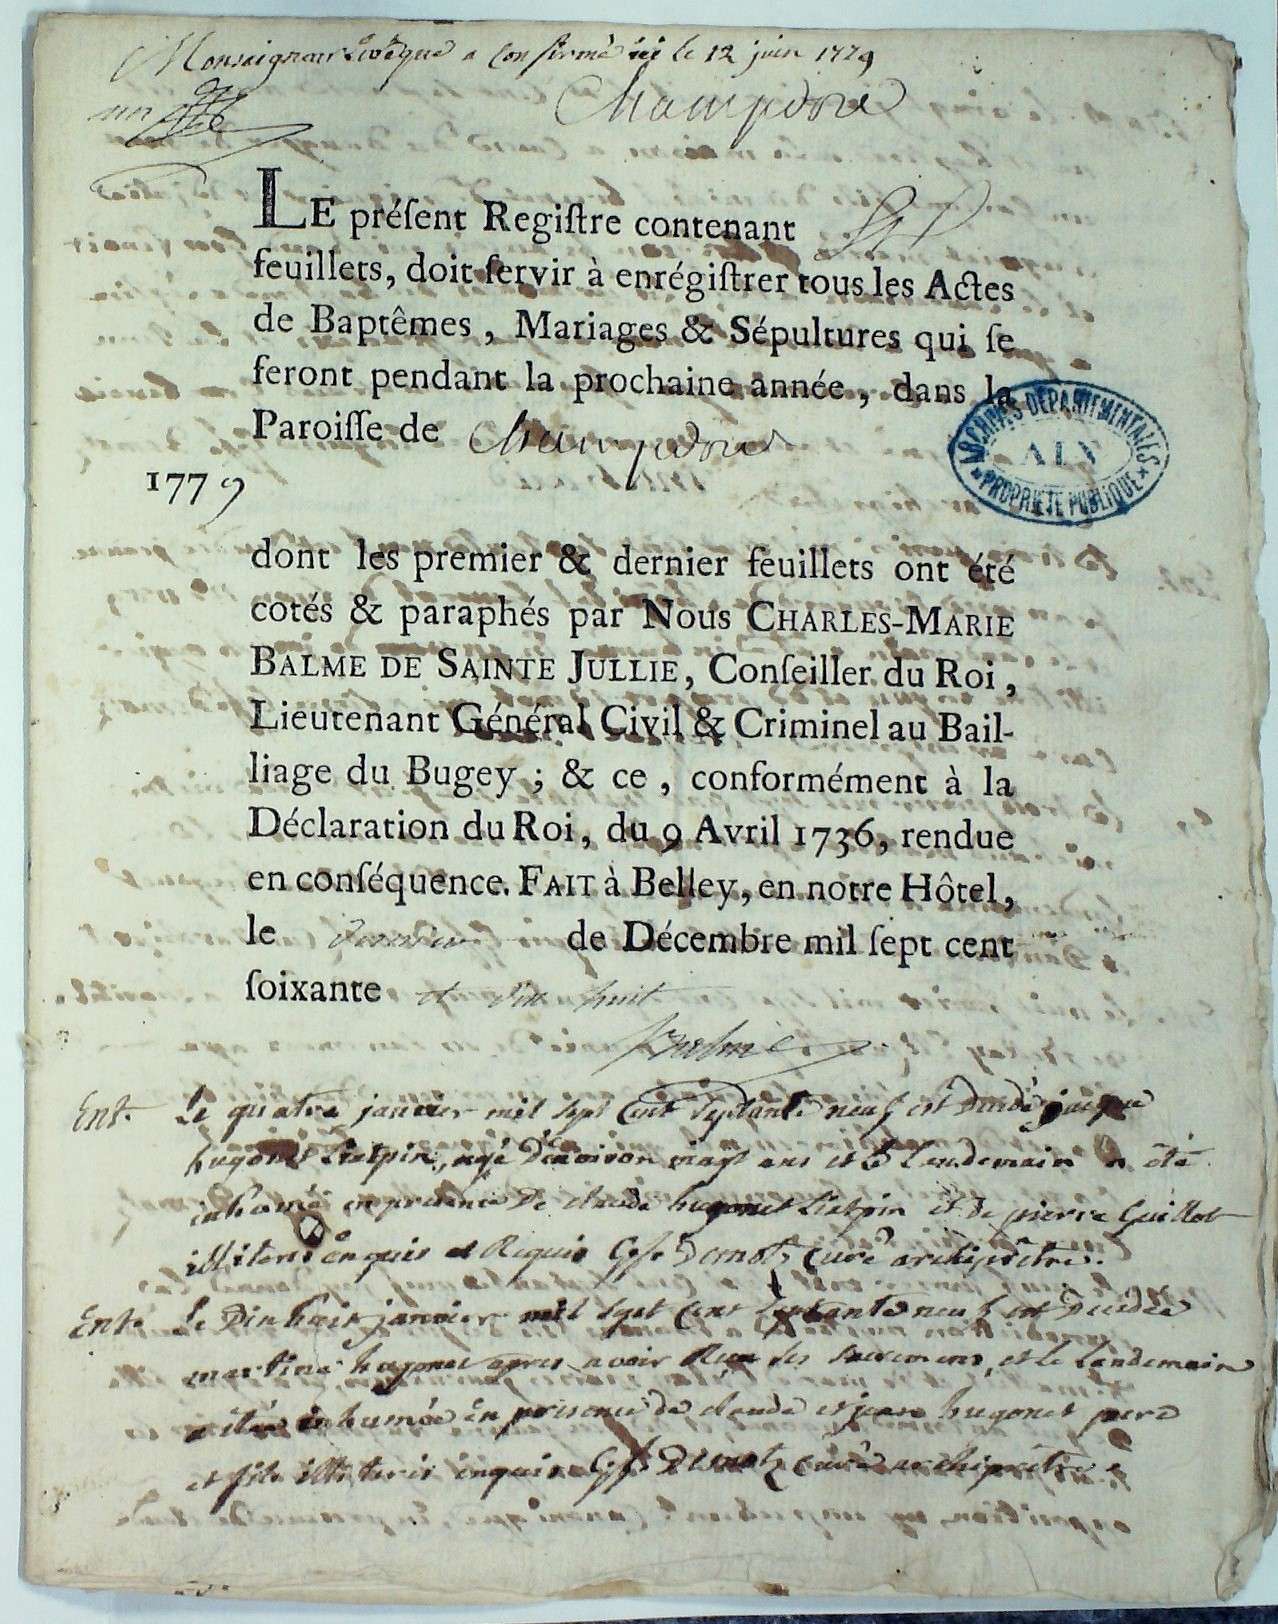 Monseigneur Evèque a confirmé ici le 12 juin 1779
Champdore
un
LE préſent Regiſtre contenant
feuillets, doit ſervir à enrégiſtrer tous les Actes
de Baptêmes, Mariages & Sépultures qui ſe
feront pendant la prochaine année, dans la
Paroiſſe de Champdore
1779
ARCHIVES DÉPARTEMENTALES
AIN
* PROPRIÉTÉ PUBLIQUE *
dont les premier & dernier feuillets ont été
cotés & paraphés par Nous CHARLES-MARIE
BALME DE SAINTE JULLIE, Conſeiller du Roi,
Lieutenant Général Civil & Criminel au Bail-
liage du Bugey ; & ce, conformément à la
Déclaration du Roi, du 9 Avril 1736, rendue
en conſéquence. FAIT à Belley, en notre Hôtel,
le de Décembre mil ſept cent
ſoixante et dix huit
Balme
Ent. Le quatre janvier mil sept cent septante neuf est décédé jacque
hugonet Liatpin, agé d'environ vingt ans et le Lendemain a été
inhumé en présence de claude hugonet Liatpin et de pierre Guillot
illiterés enquis et Requis Demotz curé archiprêtre.
Ent. Le dix huit janvier mil sept cent septante neuf est décédée
martine hugonet apres avoir Reçu les sacremens, et le landemain
a étée inhumée en présence de claude et jean hugonet pere
et fils illiterés enquis Demotz curé archiprêtre